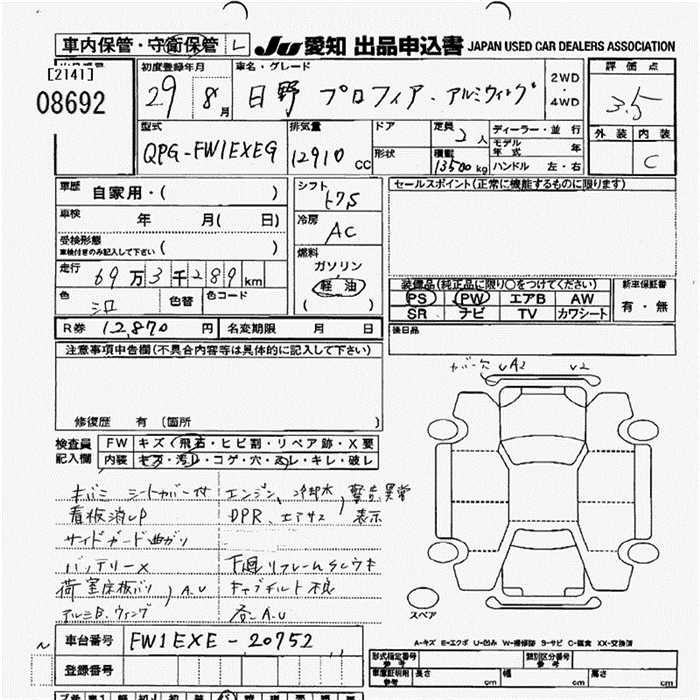 車内保管・守衛保管 L JU 愛知 出品申込書 JAPAN USED CAR DEALERS ASSOCIATION
[2141]
08692
初度登録年月 29 8月
車名・グレード 日野 プロフィア・アルミウィング
2WD・4WD
評価点 3.5
外装 内装 C
型式 QPG-FW1EXEG
排気量 12910 cc
ドア
形状
定員 2人
積載 13500 kg
ディーラー・並行
モデル年式 年
ハンドル 左・右
車歴 自家用・( )
車検 年 月( 日)
受検形態
車検付きのみ記入して下さい ( )
走行 69万3千289km
色
色替
色コード
シフト
冷房 AC
燃料
ガソリン
軽油
( )
セールスポイント(正常に機能するものに限り)
装備品(純正品に限り○をつけてください)
PS PW エアB AW
SR ナビ TV カワシート
新車保証書
有・無
後日品
R券 12,870円 名変期限 月 日
注意事項申告欄(不具合内容等は具体的に記入して下さい)
修復歴 有 (箇所
検査員記入欄
FW キズ・飛石・ヒビ割・リペア跡・X要
内装 キズ・汚レ・コゲ・穴・スレ・キレ・破レ
キバミ シートカバー付
エンジン、冷却水、警告異常
看板消しP
DPR、エアサス 表示
サイドガード曲がり
バッテリーX
下廻リフレームSCウキ
荷室床板バリ、A.U
キャブチルト不良
アルミB.ウィング
各A.U
カバー欠 UA2 U2
スペア
A-キズ E-エクボ U-凹み W-補修跡 S-サビ C-腐食 XX-交換済
車台番号 FW1EXE-20752
登録番号
形式指定番号 参考
類別区分番号 参考
車庫証明用 参考 長さ cm 幅 cm 高さ cm